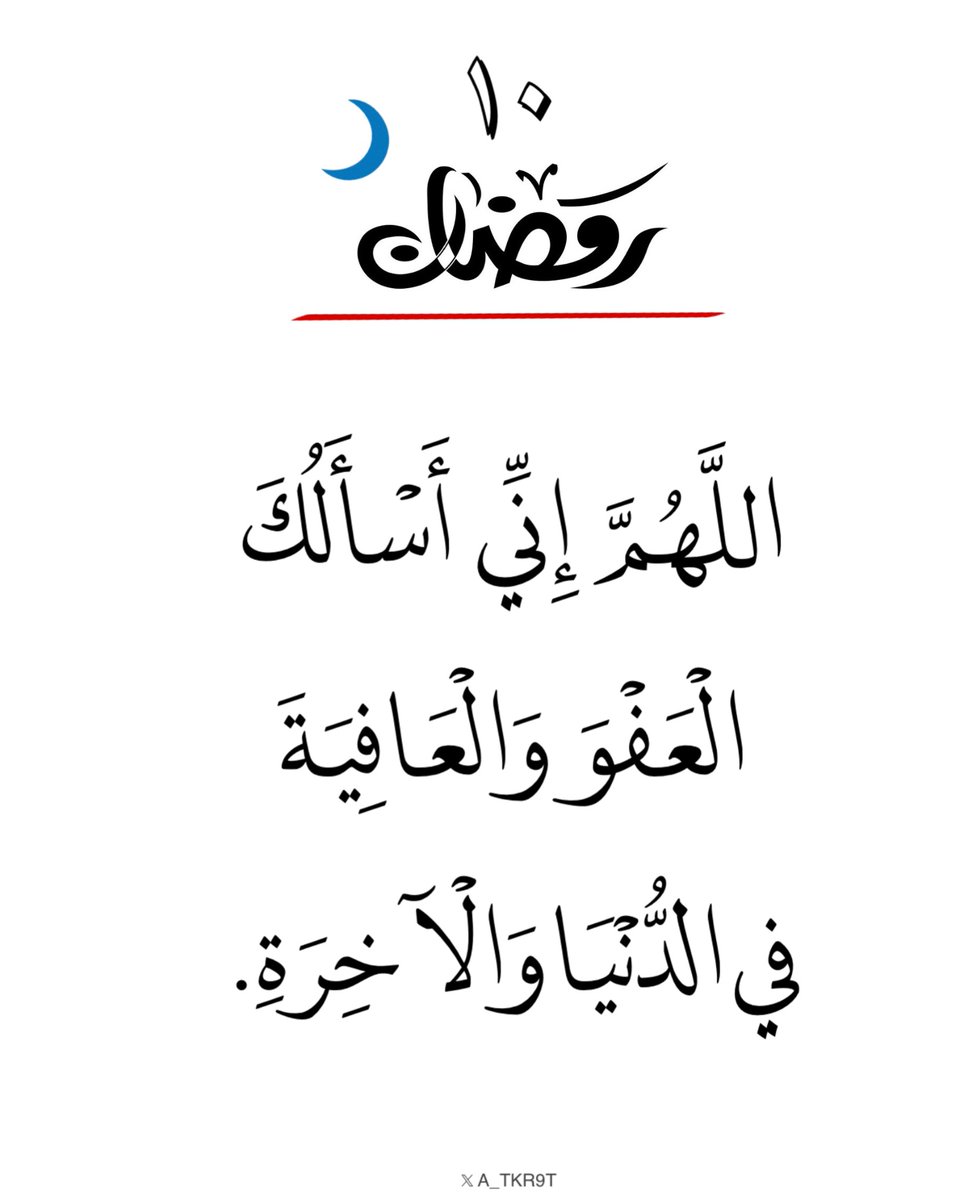 ١٠
رمضان
اللَّهُمَّ إِنِّي أَسْأَلُكَ
الْعَفْوَ وَالْعَافِيَةَ
فِي الدُّنْيَا وَالْآخِرَةِ.
𝕏 A_TKR9T